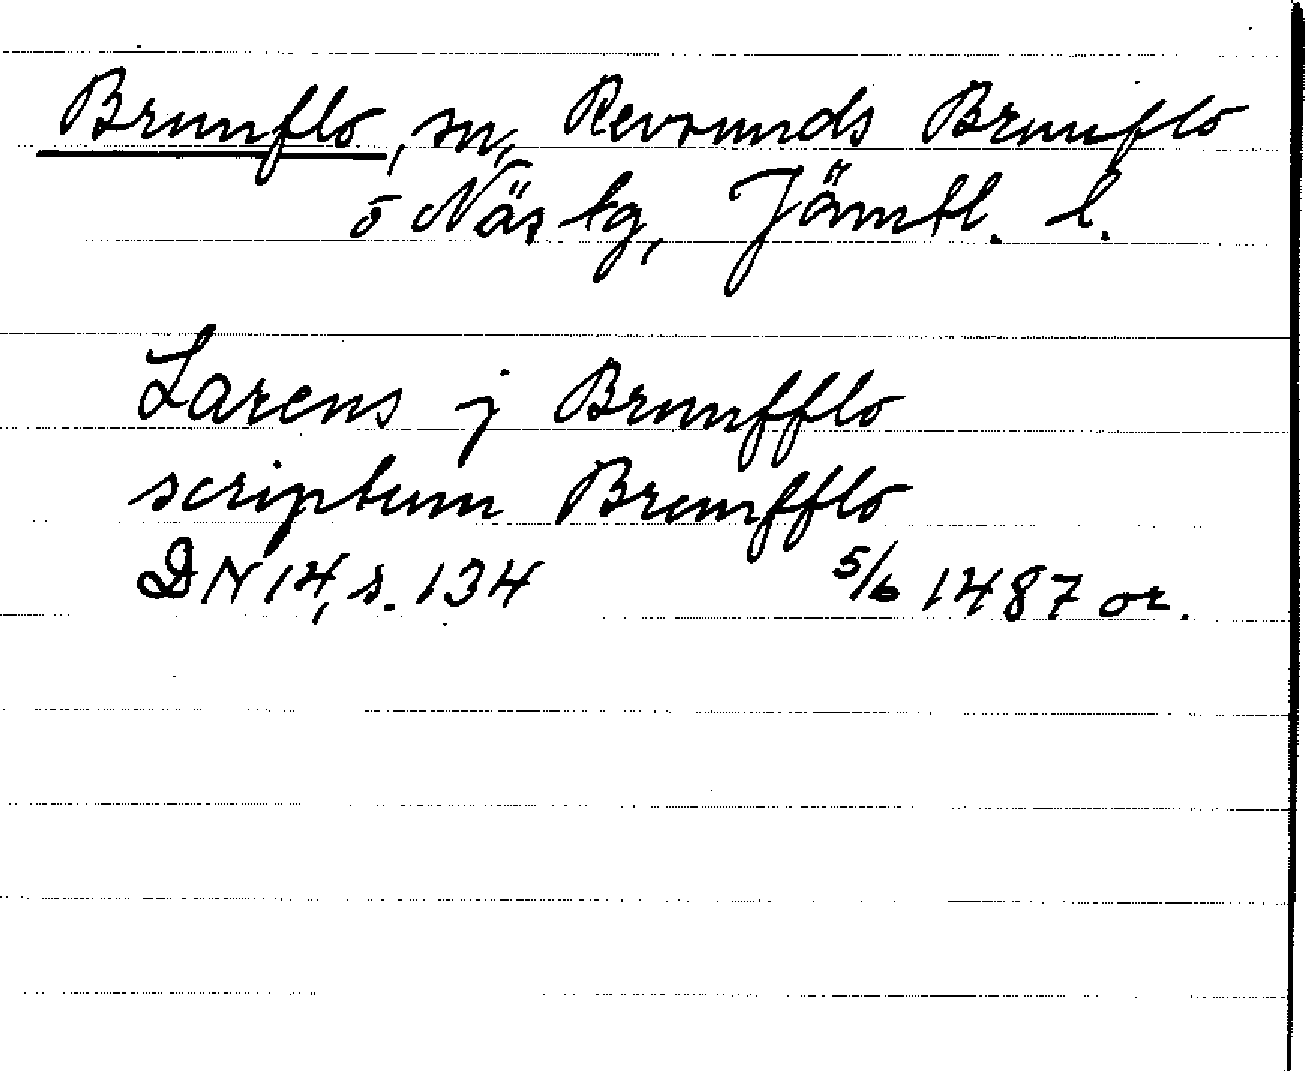 Brunflo, sn, Revsunds Brunflo
o Näs tg, Jämtl. l.
Larens j Brunfflo
scriptum Brunfflo
DN 14, s. 134 5/6 1487 or.